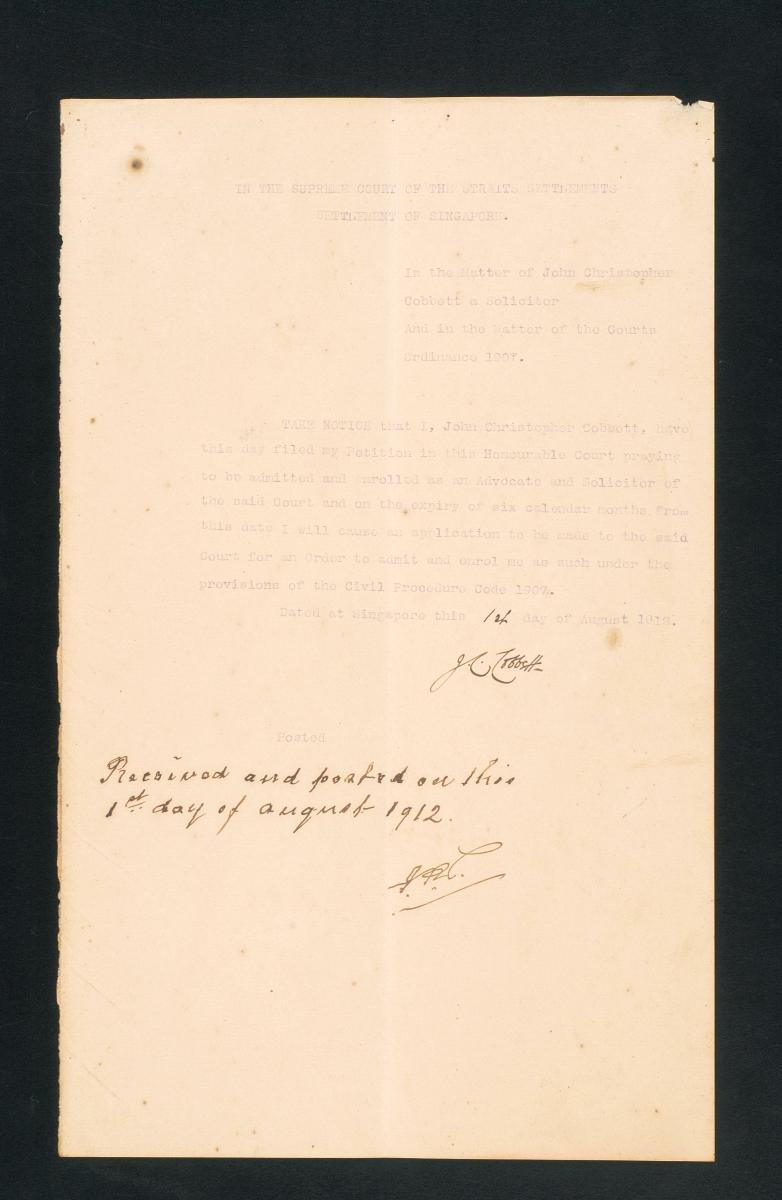 IN THE SUPREME COURT OF THE STRAITS SETTLEMENTS
SETTLEMENT OF SINGAPORE.
In the Matter of John Christopher
Cobbett a Solicitor
And in the Matter of the Courts
Ordinance 1907.
TAKE NOTICE that I, John Christopher Cobbett, have
this day filed my Petition in this Honourable Court praying
to be admitted and enrolled as an Advocate and Solicitor of
the said Court and on the expiry of six calendar months from
this date I will cause an application to be made to the said
Court for an Order to admit and enrol me as such under the
provisions of the Civil Procedure Code 1907.
Dated at Singapore this 1st day of August 1912.
J.C. Cobbett
Posted
Received and posted on this
1st day of august 1912.